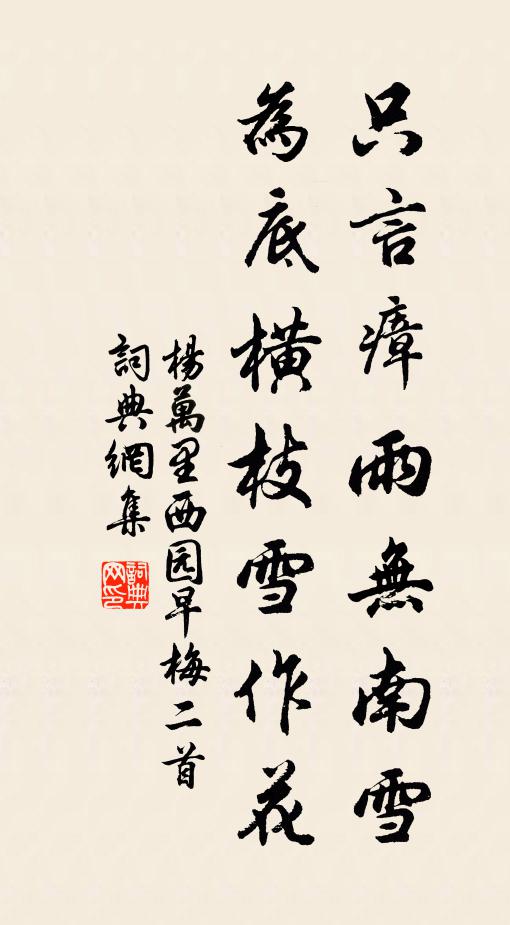 只言瘴雨無南雪
為底橫枝雪作花
楊萬里西园早梅二首
詞典網集
詞典
网印